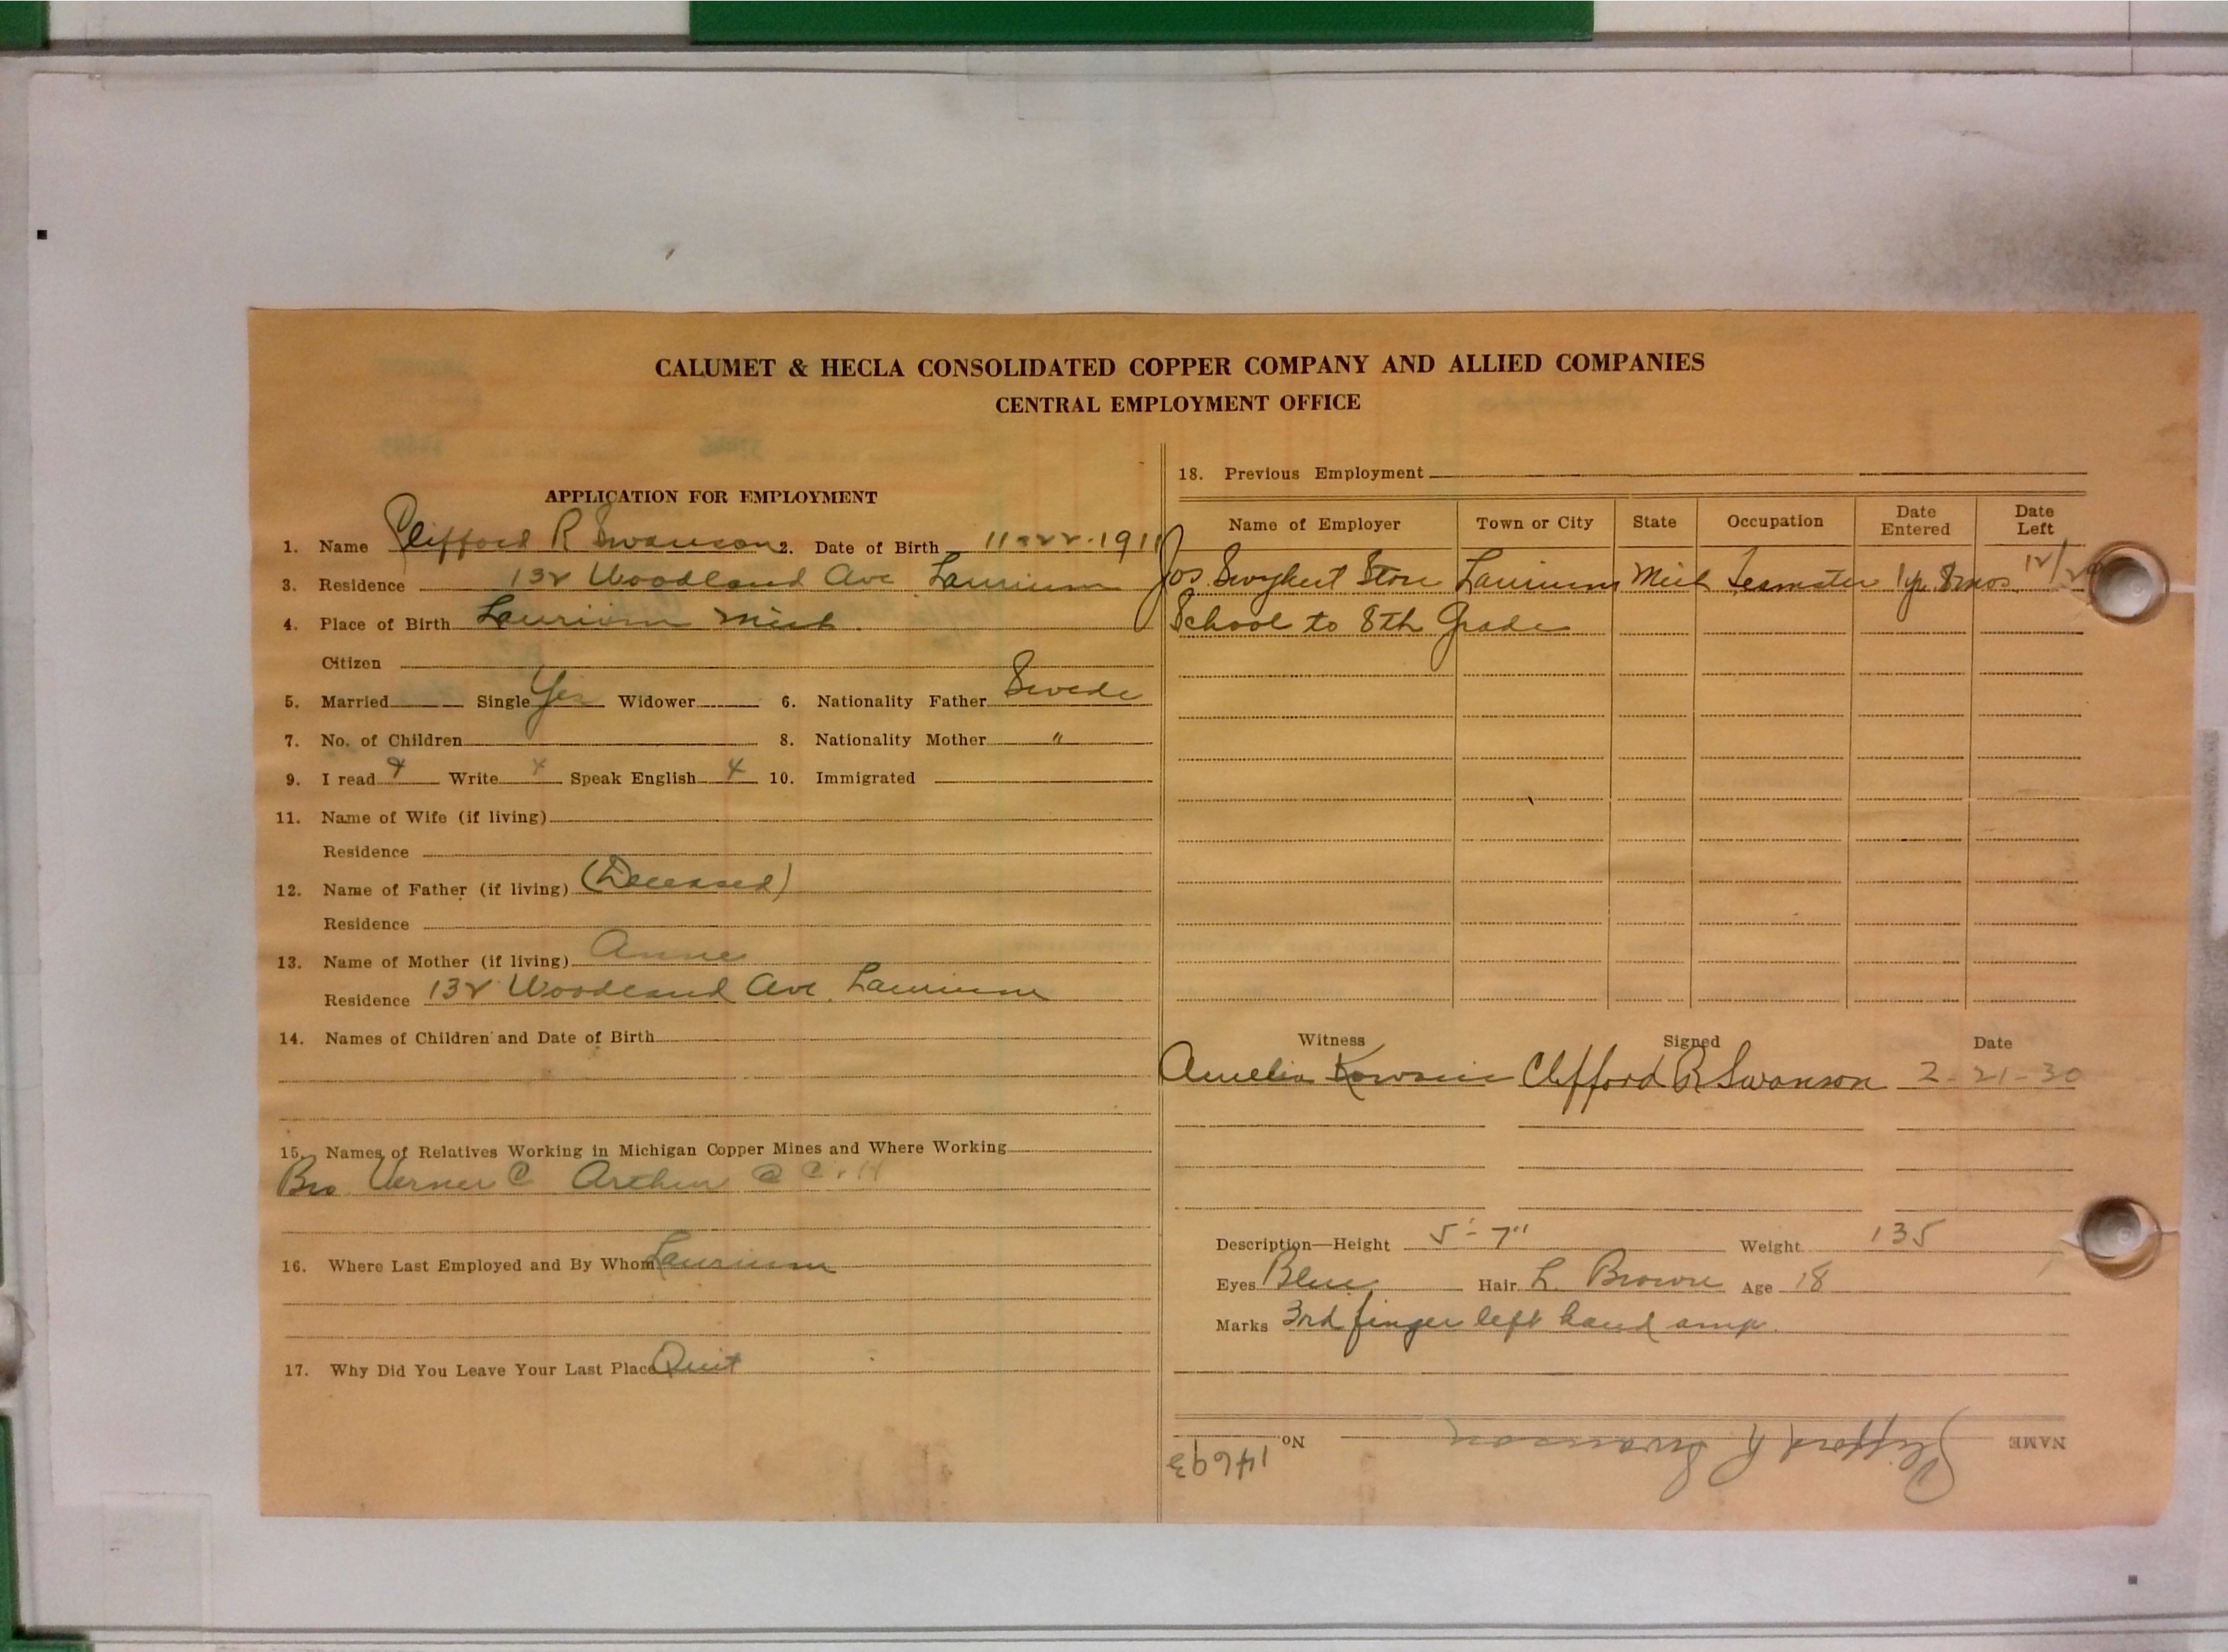 CALUMET & HECLA CONSOLIDATED COPPER COMPANY AND ALLIED COMPANIES
CENTRAL EMPLOYMENT OFFICE
APPLICATION FOR EMPLOYMENT
1. Name Clifford R Swanson 2. Date of Birth 11-22-1911
3. Residence 132 Woodland Ave Laurium
4. Place of Birth Laurium Mich.
Citizen
5. Married Single Yes Widower 6. Nationality Father Swede
7. No. of Children 8. Nationality Mother "
9. I read Write x Speak English x 10. Immigrated
11. Name of Wife (if living)
Residence
12. Name of Father (if living) (Deceased)
Residence
13. Name of Mother (if living) Anne
Residence 132 Woodland Ave. Laurium
14. Names of Children and Date of Birth
15. Names of Relatives Working in Michigan Copper Mines and Where Working
Bro Verner C Arthur @ C & H
16. Where Last Employed and By Whom Laurium
17. Why Did You Leave Your Last Place Quit
18. Previous Employment
Name of Employer Town or City State Occupation Date Entered Date Left
Jos. Store Laurium Mich Teamster 1 yr. 8 mos. 12/29
School to 8th Grade
Witness Signed Date
Amelia Clifford R Swanson 2-21-30
Description—Height 5'-7" Weight 135
Eyes Blue Hair L. Brown Age 18
Marks 3rd finger left hand amp.
NAME Clifford R Swanson No 14693